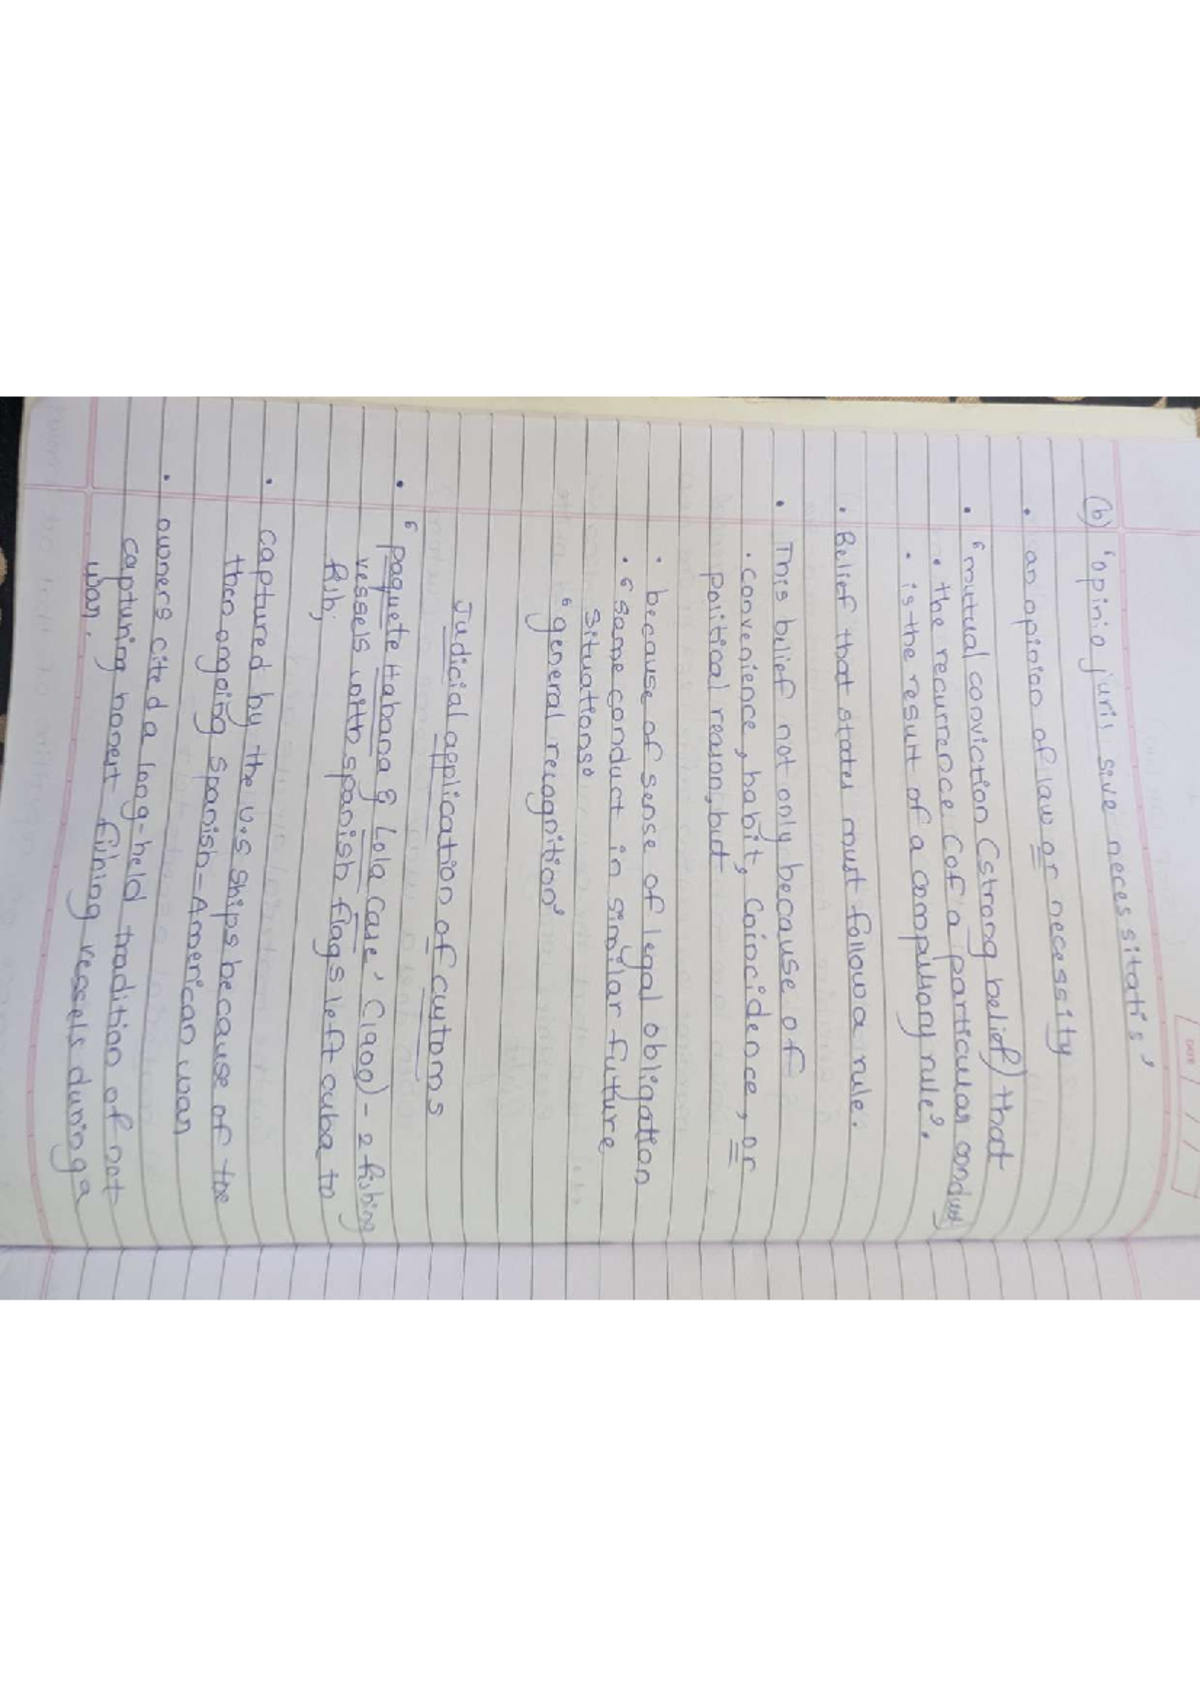 DATE
(b) 'opinio juris sive necessitatis'
• an opinion of law or necessity
• 'mutual conviction (strong belief) that
• the recurrence (of a particular conduct)
• is the result of a compulsory rule'.
• Belief that states must follow a rule.
• This belief not only because of
• convenience, habit, coincidence, or
political reason, but
• because of sense of legal obligation
• 'same conduct in similar future
situations'
'general recognition'
Judicial application of customs
• 'paquete Habana & Lola Case' (1900) - 2 fishing
vessels with spanish flags left cuba to
fish;
• captured by the U.S ships because of the
then ongoing Spanish-American war
• owners cited a long-held tradition of not
capturing honest fishing vessels during a
war.